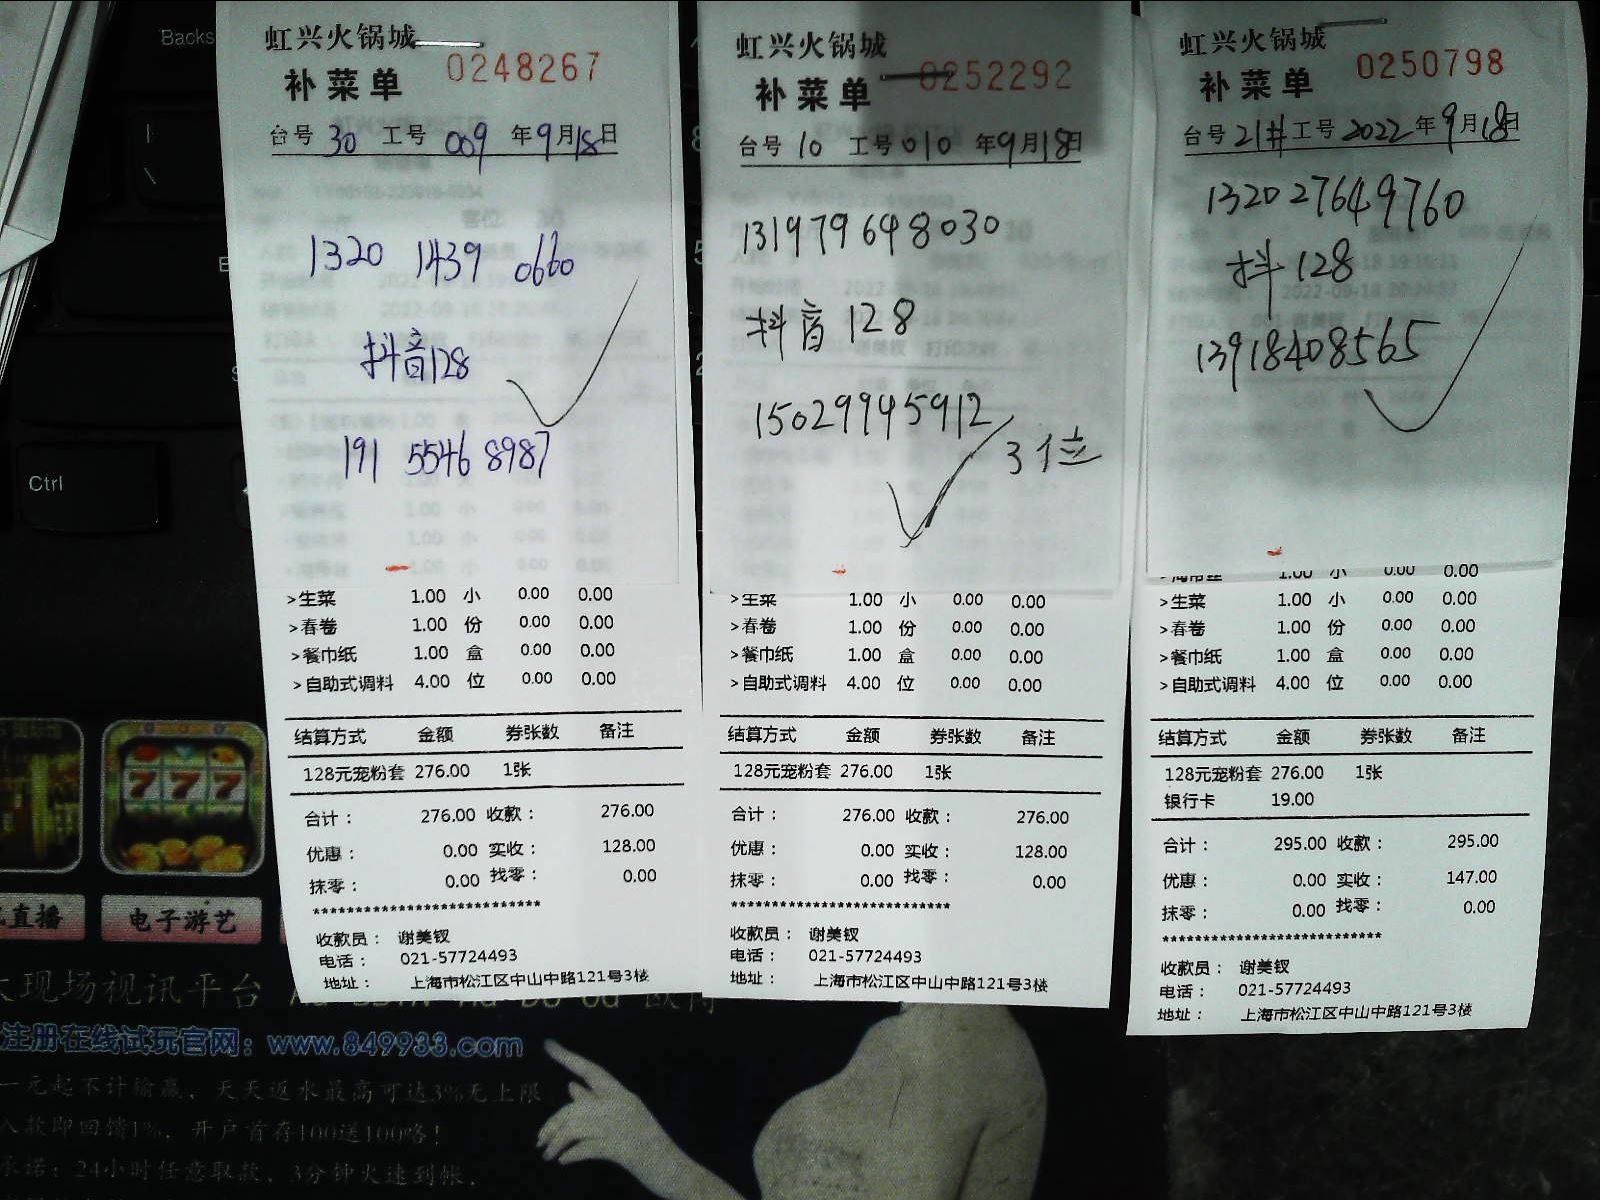 虹兴火锅城
0248267
补菜单
台号 30 工号 009 年9月18日
1320 1439 0660
抖音128
191 5546 8987
>生菜 1.00 小 0.00 0.00
>春卷 1.00 份 0.00 0.00
>餐巾纸 1.00 盒 0.00 0.00
>自助式调料 4.00 位 0.00 0.00
结算方式 金额 券张数 备注
128元宠粉套 276.00 1张
合计： 276.00 收款： 276.00
优惠： 0.00 实收： 128.00
抹零： 0.00 找零： 0.00
***************************
收款员： 谢美钗
电话： 021-57724493
地址： 上海市松江区中山中路121号3楼
虹兴火锅城
0252292
补菜单
台号 10 工号 010 年9月18日
131979698030
抖音 128
15029945912
3位
>生菜 1.00 小 0.00 0.00
>春卷 1.00 份 0.00 0.00
>餐巾纸 1.00 盒 0.00 0.00
>自助式调料 4.00 位 0.00 0.00
结算方式 金额 券张数 备注
128元宠粉套 276.00 1张
合计： 276.00 收款： 276.00
优惠： 0.00 实收： 128.00
抹零： 0.00 找零： 0.00
***************************
收款员： 谢美钗
电话： 021-57724493
地址： 上海市松江区中山中路121号3楼
虹兴火锅城
0250798
补菜单
台号 21# 工号 2022 年9月18日
132027649760
抖 128
13918408565
>海带丝 1.00 小 0.00 0.00
>生菜 1.00 小 0.00 0.00
>春卷 1.00 份 0.00 0.00
>餐巾纸 1.00 盒 0.00 0.00
>自助式调料 4.00 位 0.00 0.00
结算方式 金额 券张数 备注
128元宠粉套 276.00 1张
银行卡 19.00
合计： 295.00 收款： 295.00
优惠： 0.00 实收： 147.00
抹零： 0.00 找零： 0.00
***************************
收款员： 谢美钗
电话： 021-57724493
地址： 上海市松江区中山中路121号3楼
Backs
Ctrl
777
直播
电子游艺
现场视讯平台
注册在线试玩官网：www.849933.com
一元起不计输赢，天天返水最高可达3%无上限
入款即回馈1%，开户首存100送100咯！
承诺：24小时任意取款，3分钟火速到帐，